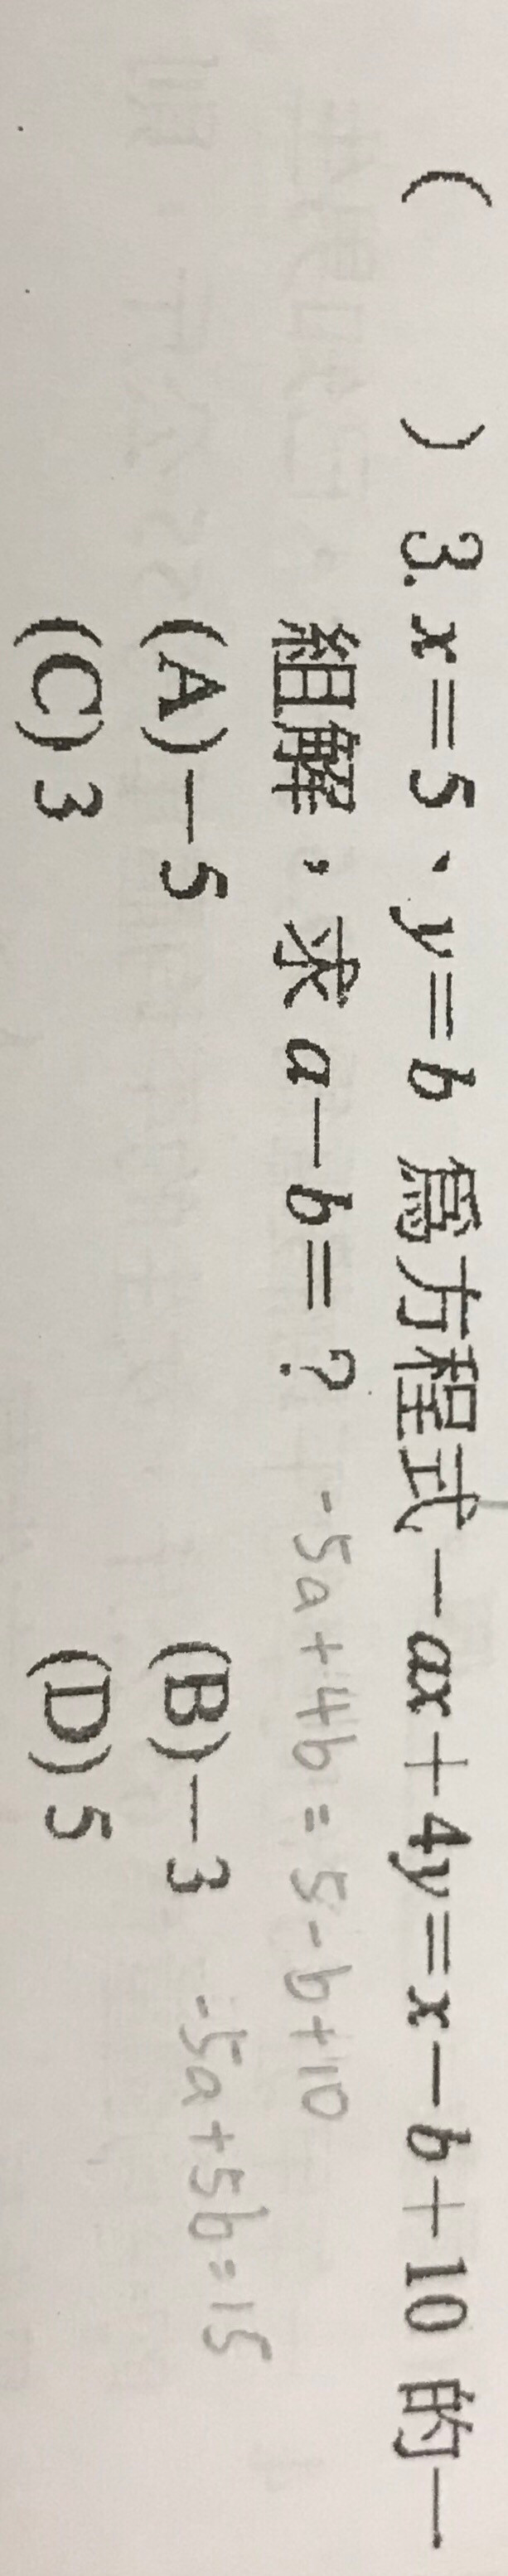 (　　) 3. x=5、y=b 為方程式-ax+4y=x-b+10 的一
組解，求 a-b=？ -5a+4b=5-b+10
(A)-5 (B)-3 -5a+5b=15
(C) 3 (D) 5